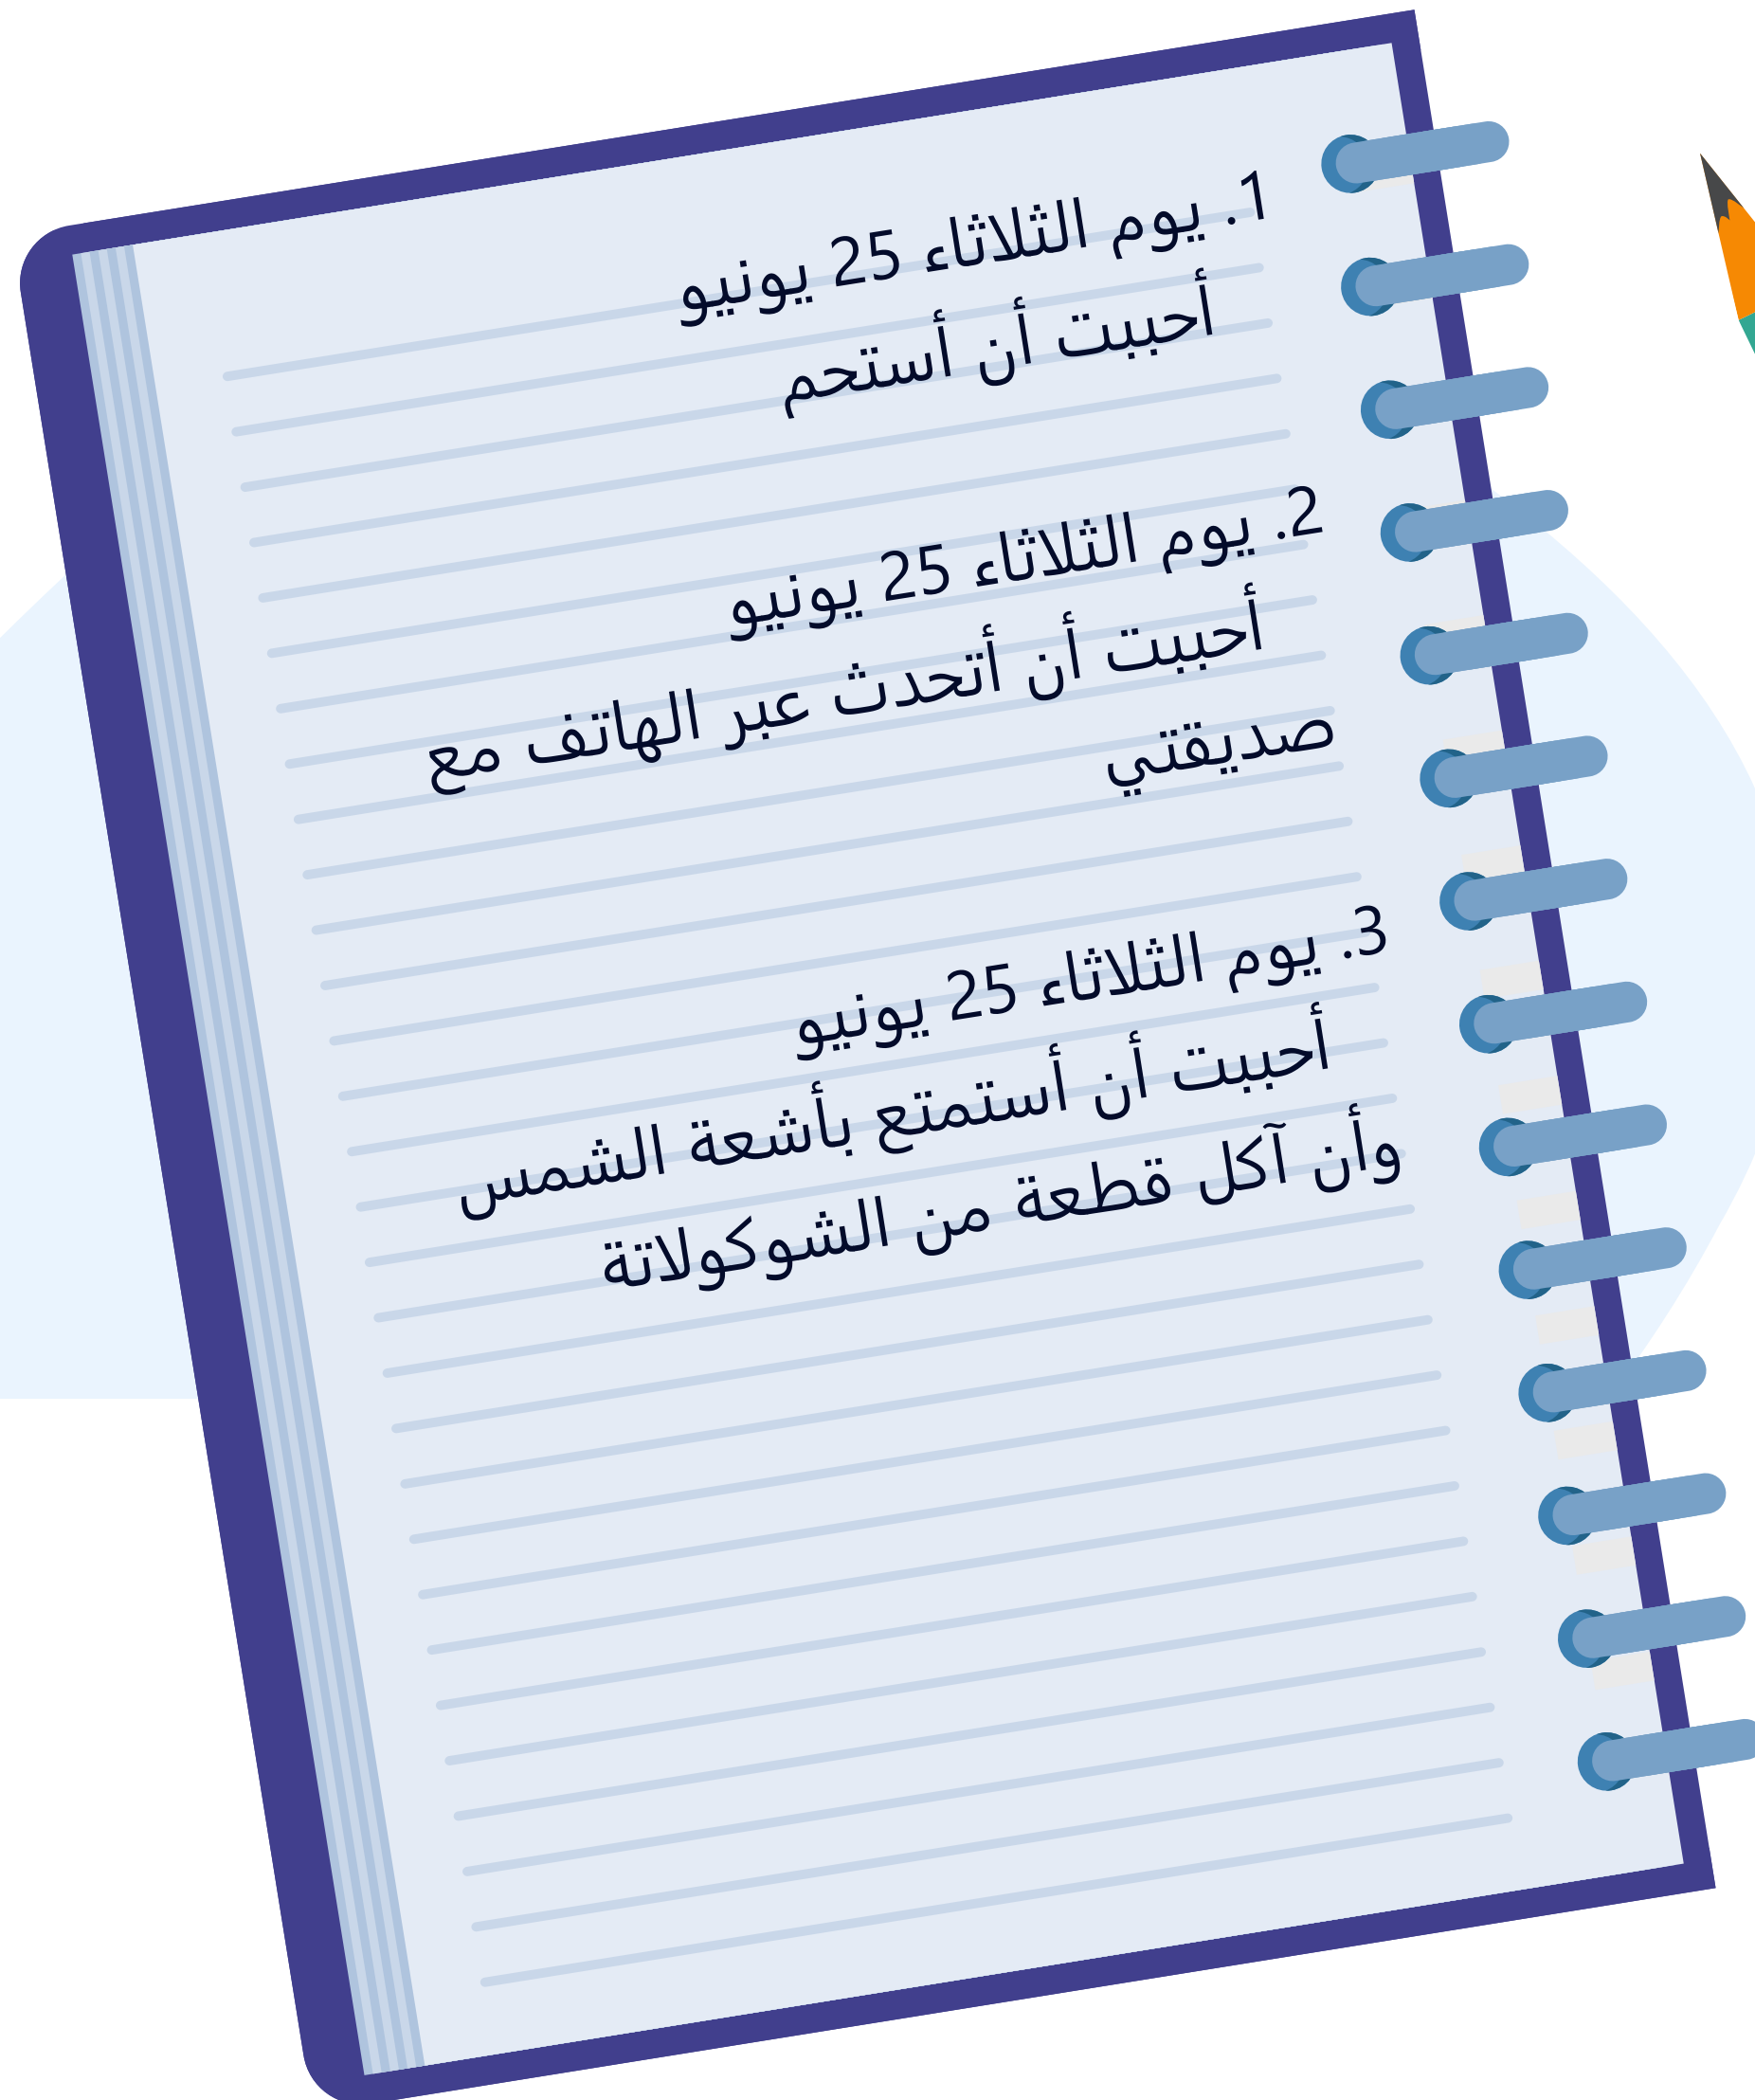 1. يوم الثلاثاء 25 يونيو
أحببت أن أستحم
2. يوم الثلاثاء 25 يونيو
أحببت أن أتحدث عبر الهاتف مع
صديقتي
3. يوم الثلاثاء 25 يونيو
أحببت أن أستمتع بأشعة الشمس
وأن آكل قطعة من الشوكولاتة